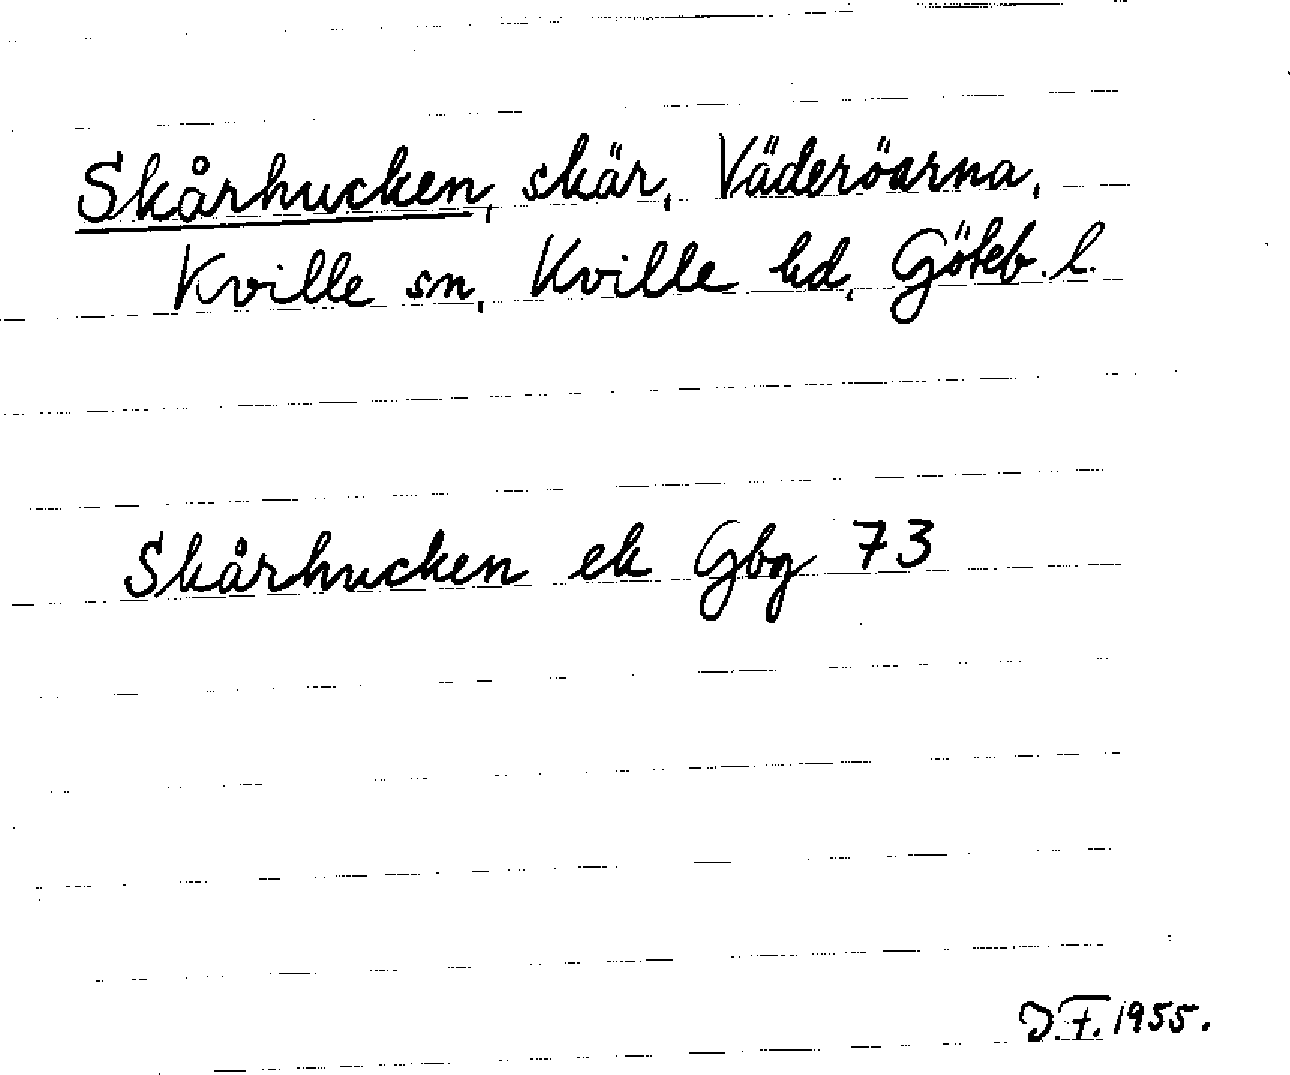 Skårhucken, skär, Väderöarna,
Kville sn, Kville hd, Göteb. l.
Skårhucken ek Gbg 73
J.F. 1955.